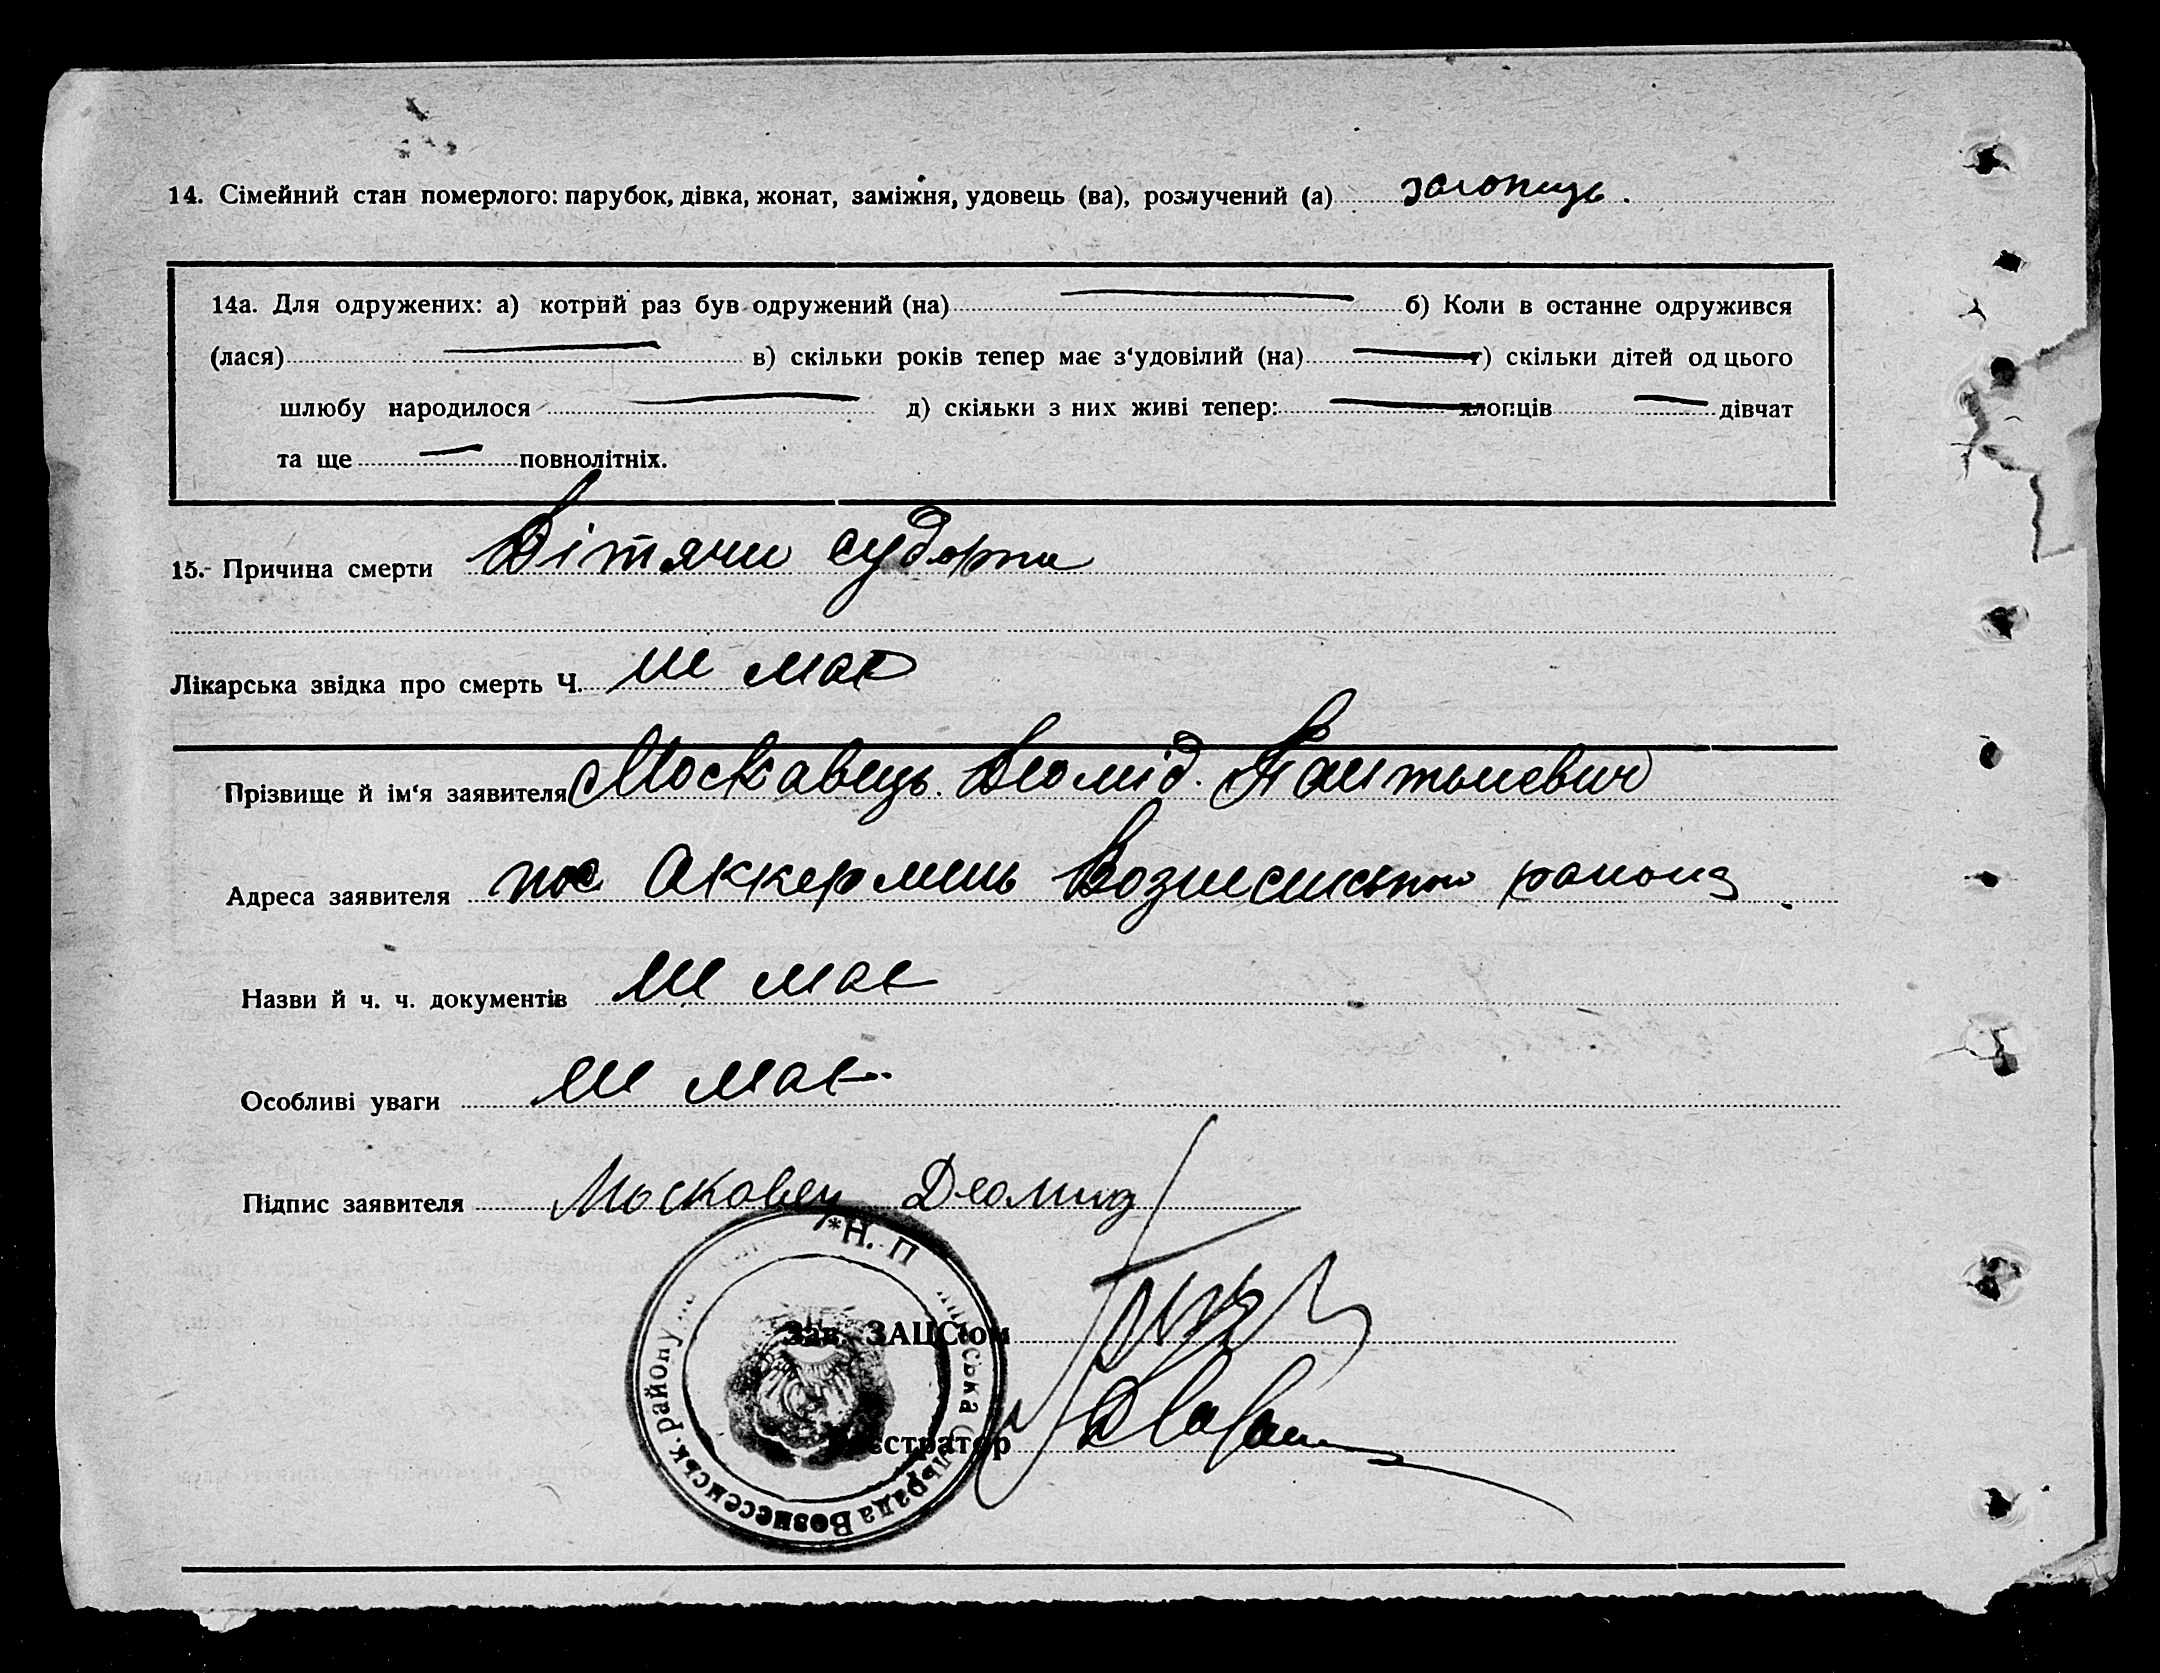 14. Сімейний стан померлого: парубок, дівка, жонат, заміжня, удовець (ва), розлучений (а)
14а. Для одружених: а) котрий раз був одружений (на) б) Коли в останне одружився
(лася) в) скільки років тепер має з‘удовілий (на) г) скільки дітей од цього
шлюбу народилося д) скільки з них живі тепер: хлопців дівчат
та ще повнолітніх.
15. Причина смерти Дітячи судорги
Лікарська звідка про смерть Ч. не має
Прізвище й ім‘я заявителя Москавець Деомід
Адреса заявителя пос Аккермень района
Назви й ч. ч. документів не має
Особливі уваги не має
Підпис заявителя Московец Деомид
*Н. П ська сільрада Вознесенськ. району
Зав. ЗАЦС‘ом
Реєстратор